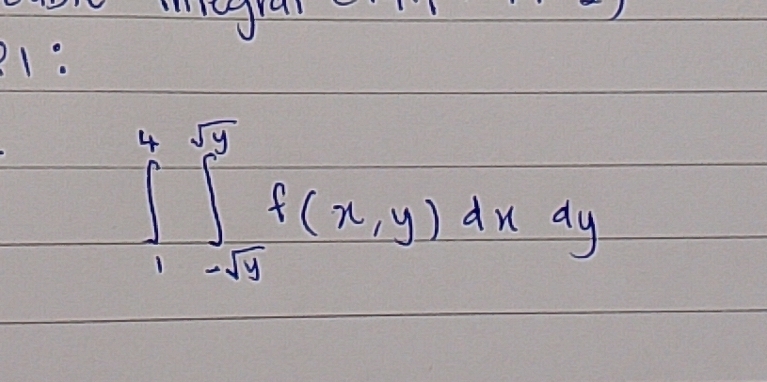 Integral
1:
∫₁⁴ ∫_{-√y}^{√y} f(x,y) dx dy